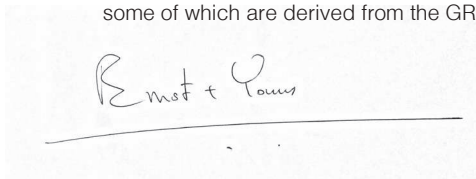 some of which are derived from the GR
Ernst + Young